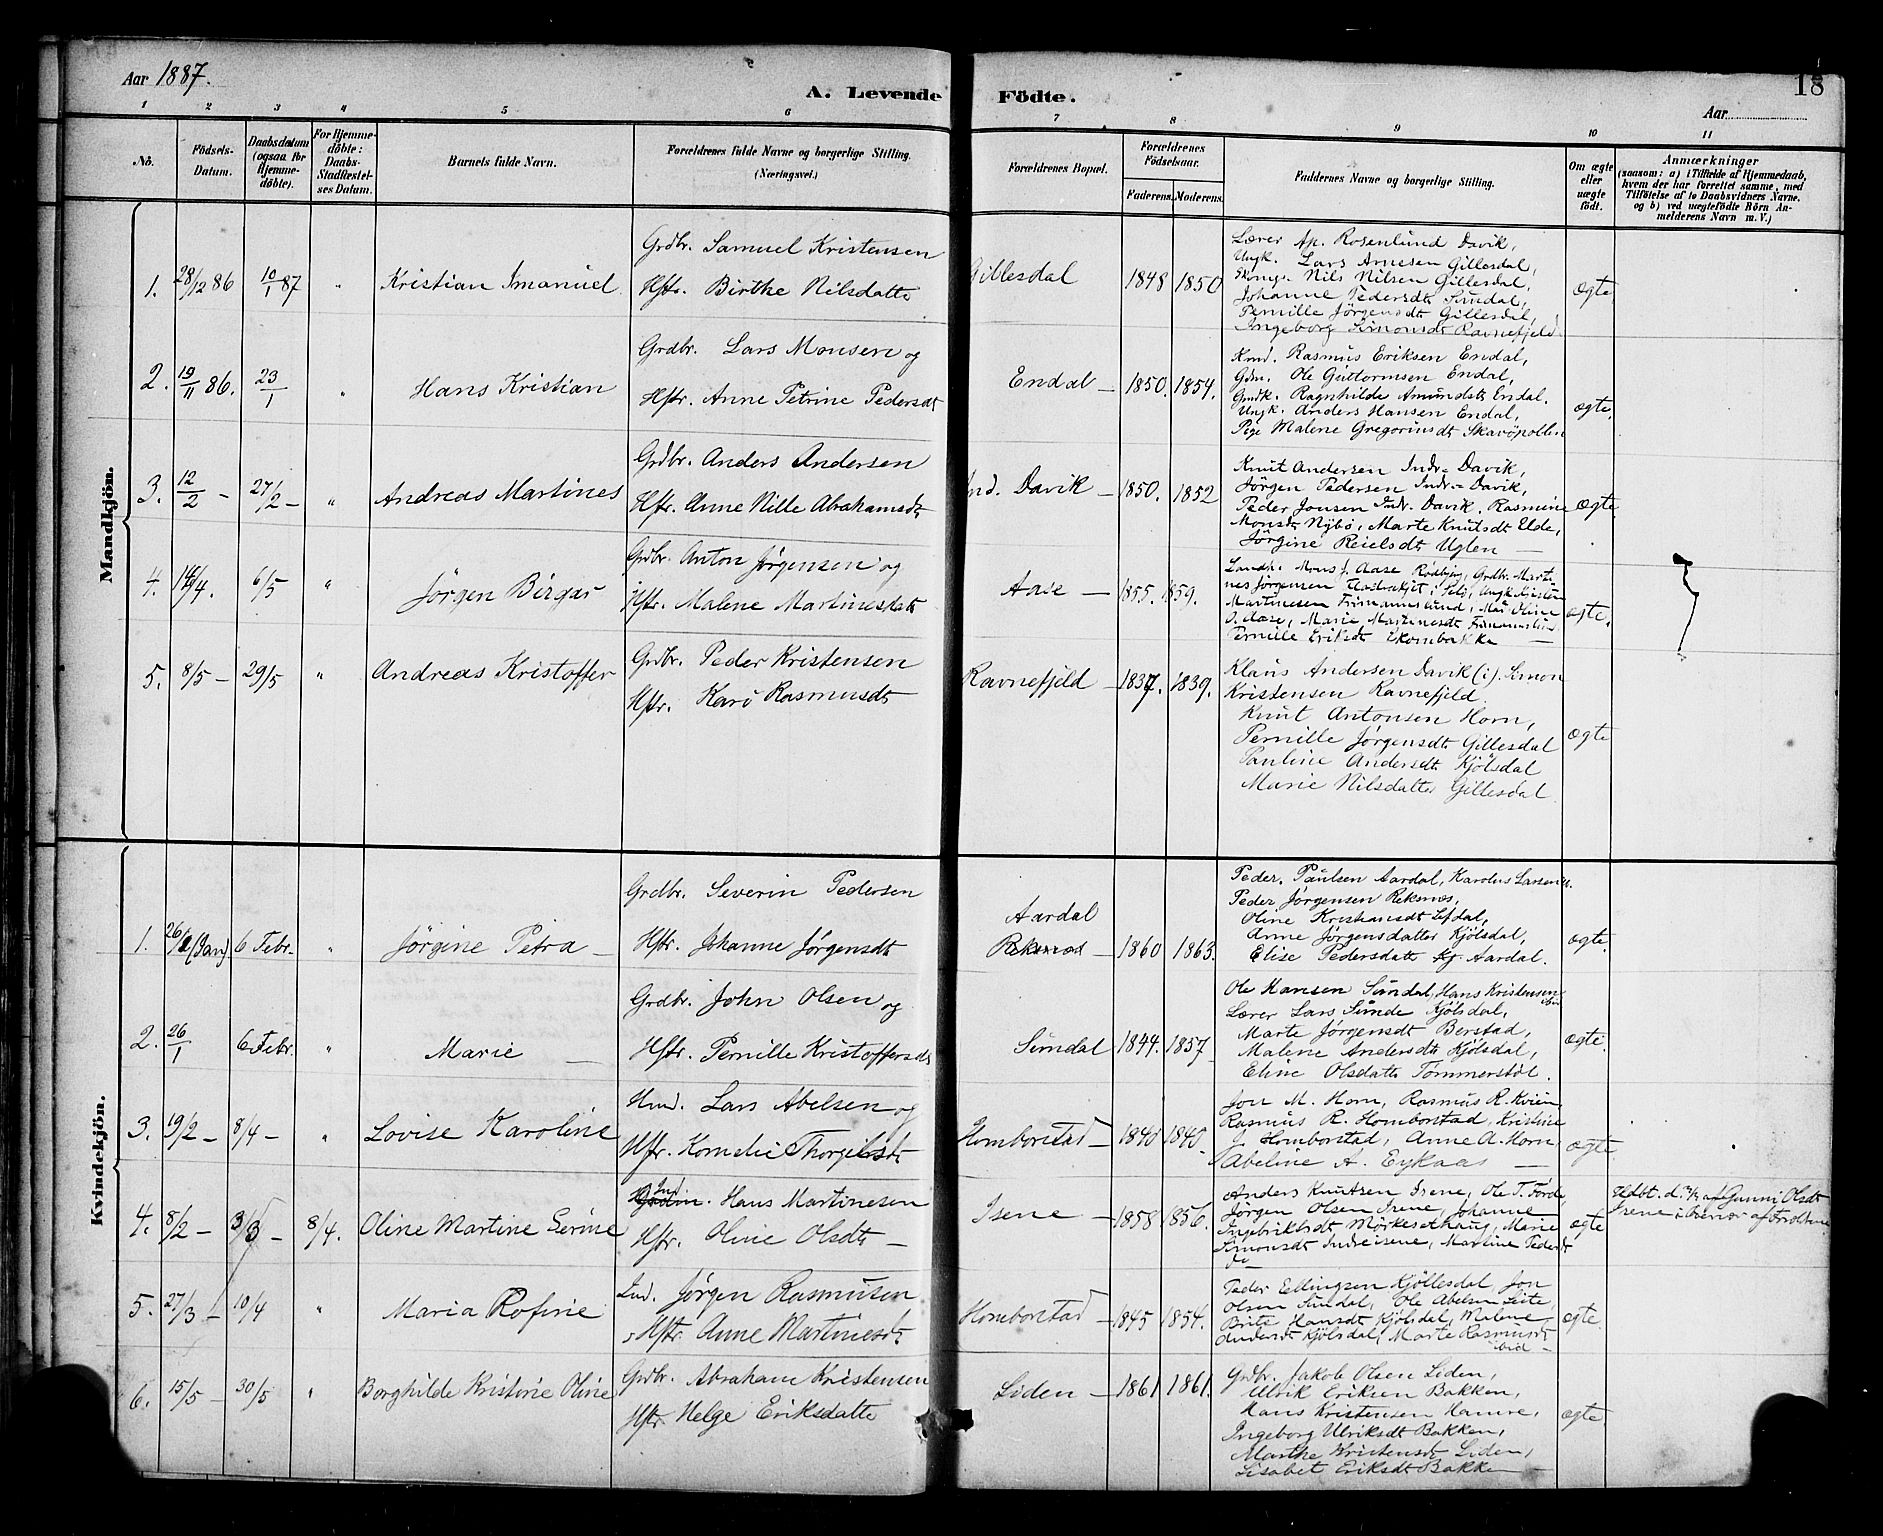 Aar 1887.
A. Levende Födte.
18
Aar
1 2 3 4 5 6 7 8 9 10 11
No.
Födsels-
Datum.
Daabsdatum
(ogsaa for
Hjemme-
döbte).
For Hjemme-
döbte:
Daabs-
Stadfæstel-
ses Datum.
Barnets fulde Navn.
Forældrenes fulde Navne og borgerlige Stilling.
(Næringsvei.)
Forældrenes Bopæl.
Forældrenes
Födselsaar.
Faderens.
Moderens.
Faddernes Navne og borgerlige Stilling.
Om ægte
eller
uægte
födt.
Anmærkninger
(saasom: a) i Tilfælde af Hjemmedaab,
hvem der har forrettet samme, med
Tilföielse af to Daabsvidners Navne.
og b) ved uægtefödte Börn An-
melderens Navn m. V.)
Mandkjön.
1. 28/12 86 10/1 87 " Kristian Imanuel
Grdbr. Samuel Kristensen
Hstr. Birthe Nilsdatte
Gillesdal 1848 1850
Lærer Ap. Rosenlund Davik,
Ungk. Lars Arnesen Gillesdal,
Nils Nilsen Gillesdal,
Johanne Pedersdt Sundal,
Pernille Jörgensdt Gillesdal,
Ingeborg Simonsdt Ravnefjeld
ægte
2. 19/11 86. 23/1 " Hans Kristian
Grdbr. Lars Monsen og
Hstr. Anne Petrine Pedersdt
Endal — 1850. 1854.
Kmd. Rasmus Eriksen Endal,
Gdm. Ole Guttormsen Endal,
Gmdk. Ragnhilde Amundsdt Endal.
Ungk. Anders Hansen Endal,
Pige Malene Gregoriusdt Skavöpollen
ægte.
3. 12/2 — 27/2 — " Andreas Martines
Grdbr. Anders Andersen
Hstr. Anne Nille Abrahamsdt
Ind. Davik — 1850. 1852
Knut Andersen Indr= Davik,
Jörgen Pedersen Indr= Davik,
Peder Jonsen Indr. Davik. Rasmine
Monsdt Nybö, Marte Knutsdt Elde,
Jörgine Reielsdt Uglen —
ægte.
4. 14/4. 6/5 " Jörgen Birgar
Grdbr. Anton Jörgensen og
Hstr. Malene Martinesdatt
Aase — 1855. 1859.
Landh. Mons J. Aase Rödbjerg, Grdbr. Marti-
nes Jörgensen
Martinesen Frimannslund, Mai Oline
J. Aase, Marie Martinesdt Frimannslund
Pernille Eriksdt —
ægte.
5. 8/5 — 29/5 " Andreas Kristoffer
Grdbr. Peder Kristensen
Hstr. Kari Rasmusdt
Ravnefjeld — 1837. 1839.
Klaus Andersen Davik (i). Simon
Kristensen Ravnefjeld
Knut Antonsen Horn,
Pernille Jörgensdt Gillesdal
Pauline Andersdt Kjölsdal
Marie Nilsdatter Gillesdal
ægte
Kvindekjön.
1. 26/1 (Jan) 6 Febr. " Jörgine Petra —
Grdbr. Severin Pedersen
Hstr. Johanne Jörgensdt
Aardal
Reksnes — 1860 1863.
Peder. Paulsen Aardal, Karolus Larsen
Peder Jörgensen Reksnes,
Oline Kristiansdt Lefdal,
Anne Jörgensdatter Kjölsdal,
Elise Pedersdatt Aardal.
ægte.
2. 26/1 6 Febr. " Marie —
Grdbr. John Olsen og
Hstr. Pernille Kristoffersdt
Sundal 1844. 1857
Ole Hansen Sundal, Hans Kristensen ibid
Lærer Lars Sunde Kjölsdal,
Marte Jörgensdt Berstad,
Malene Andersdt Kjölsdal,
Eline Olsdatt Tömmerstöl.
ægte.
3. 19/2 — 8/4 — " Lovise Karoline
Hmd. Lars Abelsen og
Hstr. Kornelie Thorgilsdt
Homborstad — 1840 1840.
Jon M. Horn, Rasmus R. Kvien
Rasmus R. Homborstad, Kristine
J. Homborstad, Anne A. Horn,
Abeline A. Eykaas —
ægte
4. 8/2 — 3/3 — 8/4. Oline Martine Serine
Ind. Hans Martinesen
Hstr. Oline Olsdt —
Isene — 1858 1856.
Anders Knutsen Isene, Ole T. Förde,
Jörgen Olsen Isene, Johanne
Ingebriktsdt Mörkesethaug, Marie
Simonsdt Indreisene, Martine Pedersdt
do
ægte
af Gunni Olsdt
Isene i af Foreldrene
5. 27/3 — 10/4 " Maria Rofine
Ind. Jörgen Rasmusen
Hstr. Anne Martinesdt
Homborstad — 1845 1854.
Peder Ellingsen Kjöllesdal, Jon
Olsen Sundal, Ole Abelsen Leite,
Brite Hansdt Kjölsdal, Malene
Andersdt Kjölsdal, Marte Rasmusdt
ibid —
ægte
6. 15/5 — 30/5 " Borghilde Kristine Oline
Grdbr. Abraham Kristensen
Hstr. Helge Eriksdatte
Liden — 1861 1861.
Grdbr. Jakob Olsen Liden,
Ulrik Eriksen Bakken,
Hans Kristensen Hamre,
Ingeborg Ulriksdt Bakken,
Marthe Kristensdt Liden,
Lisabet Eriksdt Bakken —
ægte